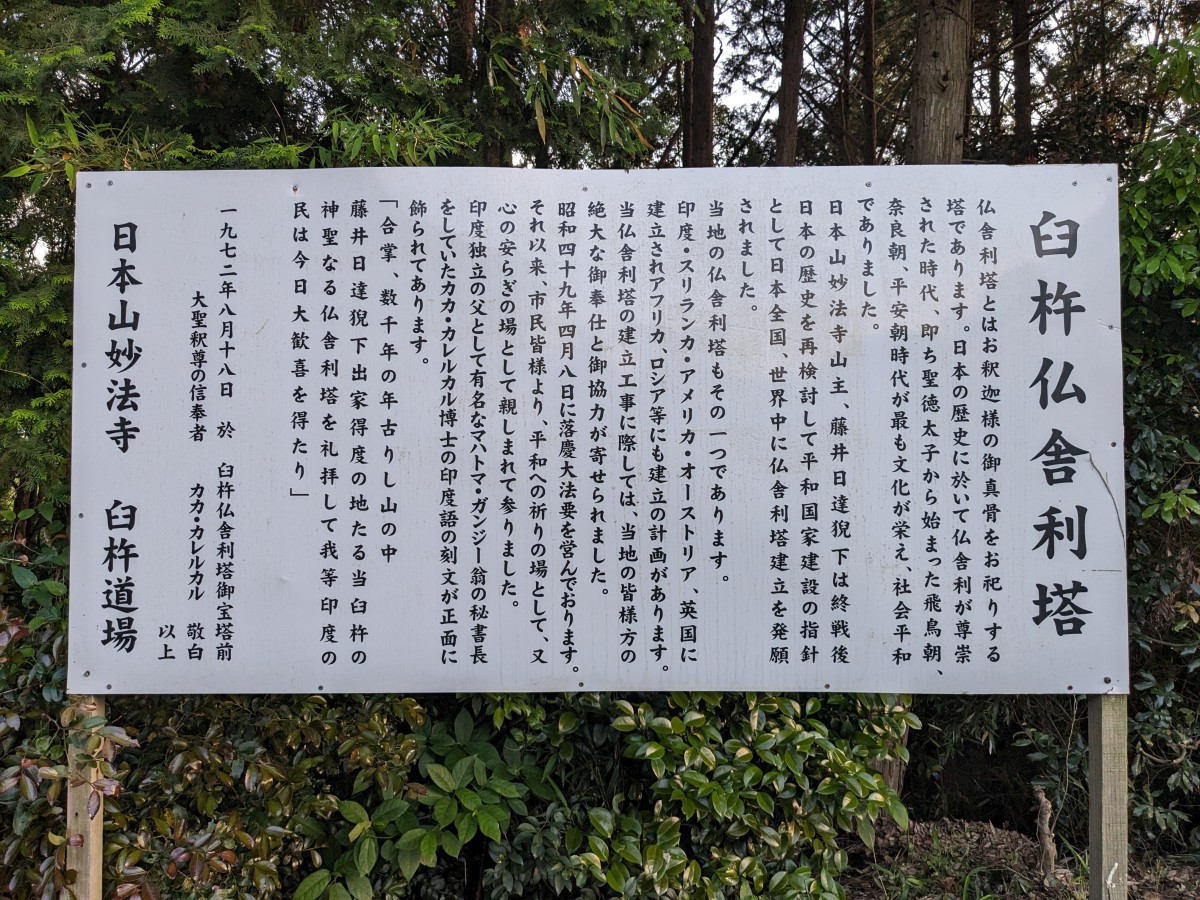 臼杵仏舎利塔
仏舎利塔とはお釈迦様の御真骨をお祀りする
塔であります。日本の歴史に於いて仏舎利が尊崇
された時代、即ち聖徳太子から始まった飛鳥朝、
奈良朝、平安朝時代が最も文化が栄え、社会平和
でありました。
日本山妙法寺山主、藤井日達猊下は終戦後
日本の歴史を再検討して平和国家建設の指針
として日本全国、世界中に仏舎利塔建立を発願
されました。
当地の仏舎利塔もその一つであります。
印度・スリランカ・アメリカ・オーストリア、英国に
建立されアフリカ、ロシア等にも建立の計画があります。
当仏舎利塔の建立工事に際しては、当地の皆様方の
絶大な御奉仕と御協力が寄せられました。
昭和四十九年四月八日に落慶大法要を営んでおります。
それ以来、市民皆様より、平和への祈りの場として、又
心の安らぎの場として親しまれて参りました。
印度独立の父として有名なマハトマ・ガンジー翁の秘書長
をしていたカカ・カレルカル博士の印度語の刻文が正面に
飾られてあります。
「合掌、数千年の年古りし山の中
藤井日達猊下出家得度の地たる当臼杵の
神聖なる仏舎利塔を礼拝して我等印度の
民は今日大歓喜を得たり」
一九七二年八月十八日 於 臼杵仏舎利塔御宝塔前
大聖釈尊の信奉者 カカ・カレルカル 敬白
以上
日本山妙法寺 臼杵道場